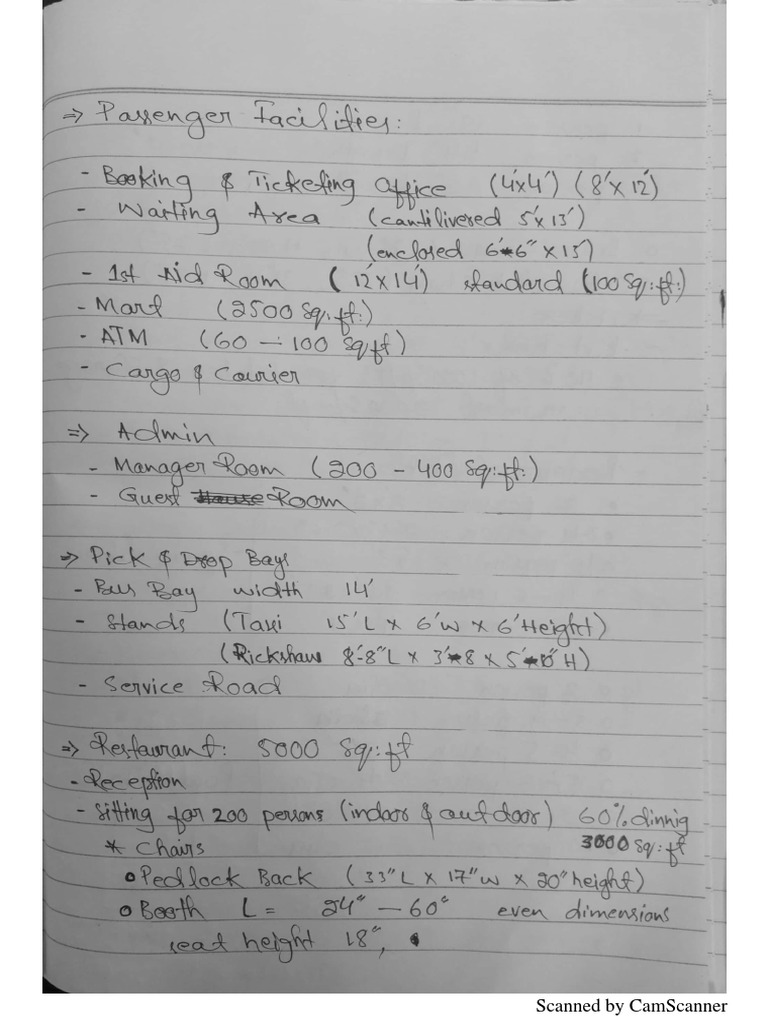 ⇒ Passenger Facilities:
- Booking & Ticketing Office (4'x4') (8'x12')
- Waiting Area (cantilivered 5'x13')
(enclosed 6'-6" x 15')
- 1st Aid Room (12'x14') standard (100 Sq:ft:)
- Mart (2500 Sq:ft:)
- ATM (60 – 100 Sqft)
- Cargo & Courier
⇒ Admin
- Manager Room (200 - 400 Sq:ft:)
- Guest Room
⇒ Pick & Drop Bays
- Bus Bay width 14'
- Stands (Taxi 15'L x 6'W x 6'Height)
(Rickshaw 8'-8"L x 3'-8 x 5'-10" H)
- Service Road
⇒ Restaurant: 5000 Sq:ft
- Reception
- Sitting for 200 persons (indoor & outdoor) 60% dinnig
* Chairs 3000 Sq:ft
o Pedlock Back (33"L x 17"W x 20" height)
o Booth L = 24" – 60" even dimensions
seat height 18",
Scanned by CamScanner